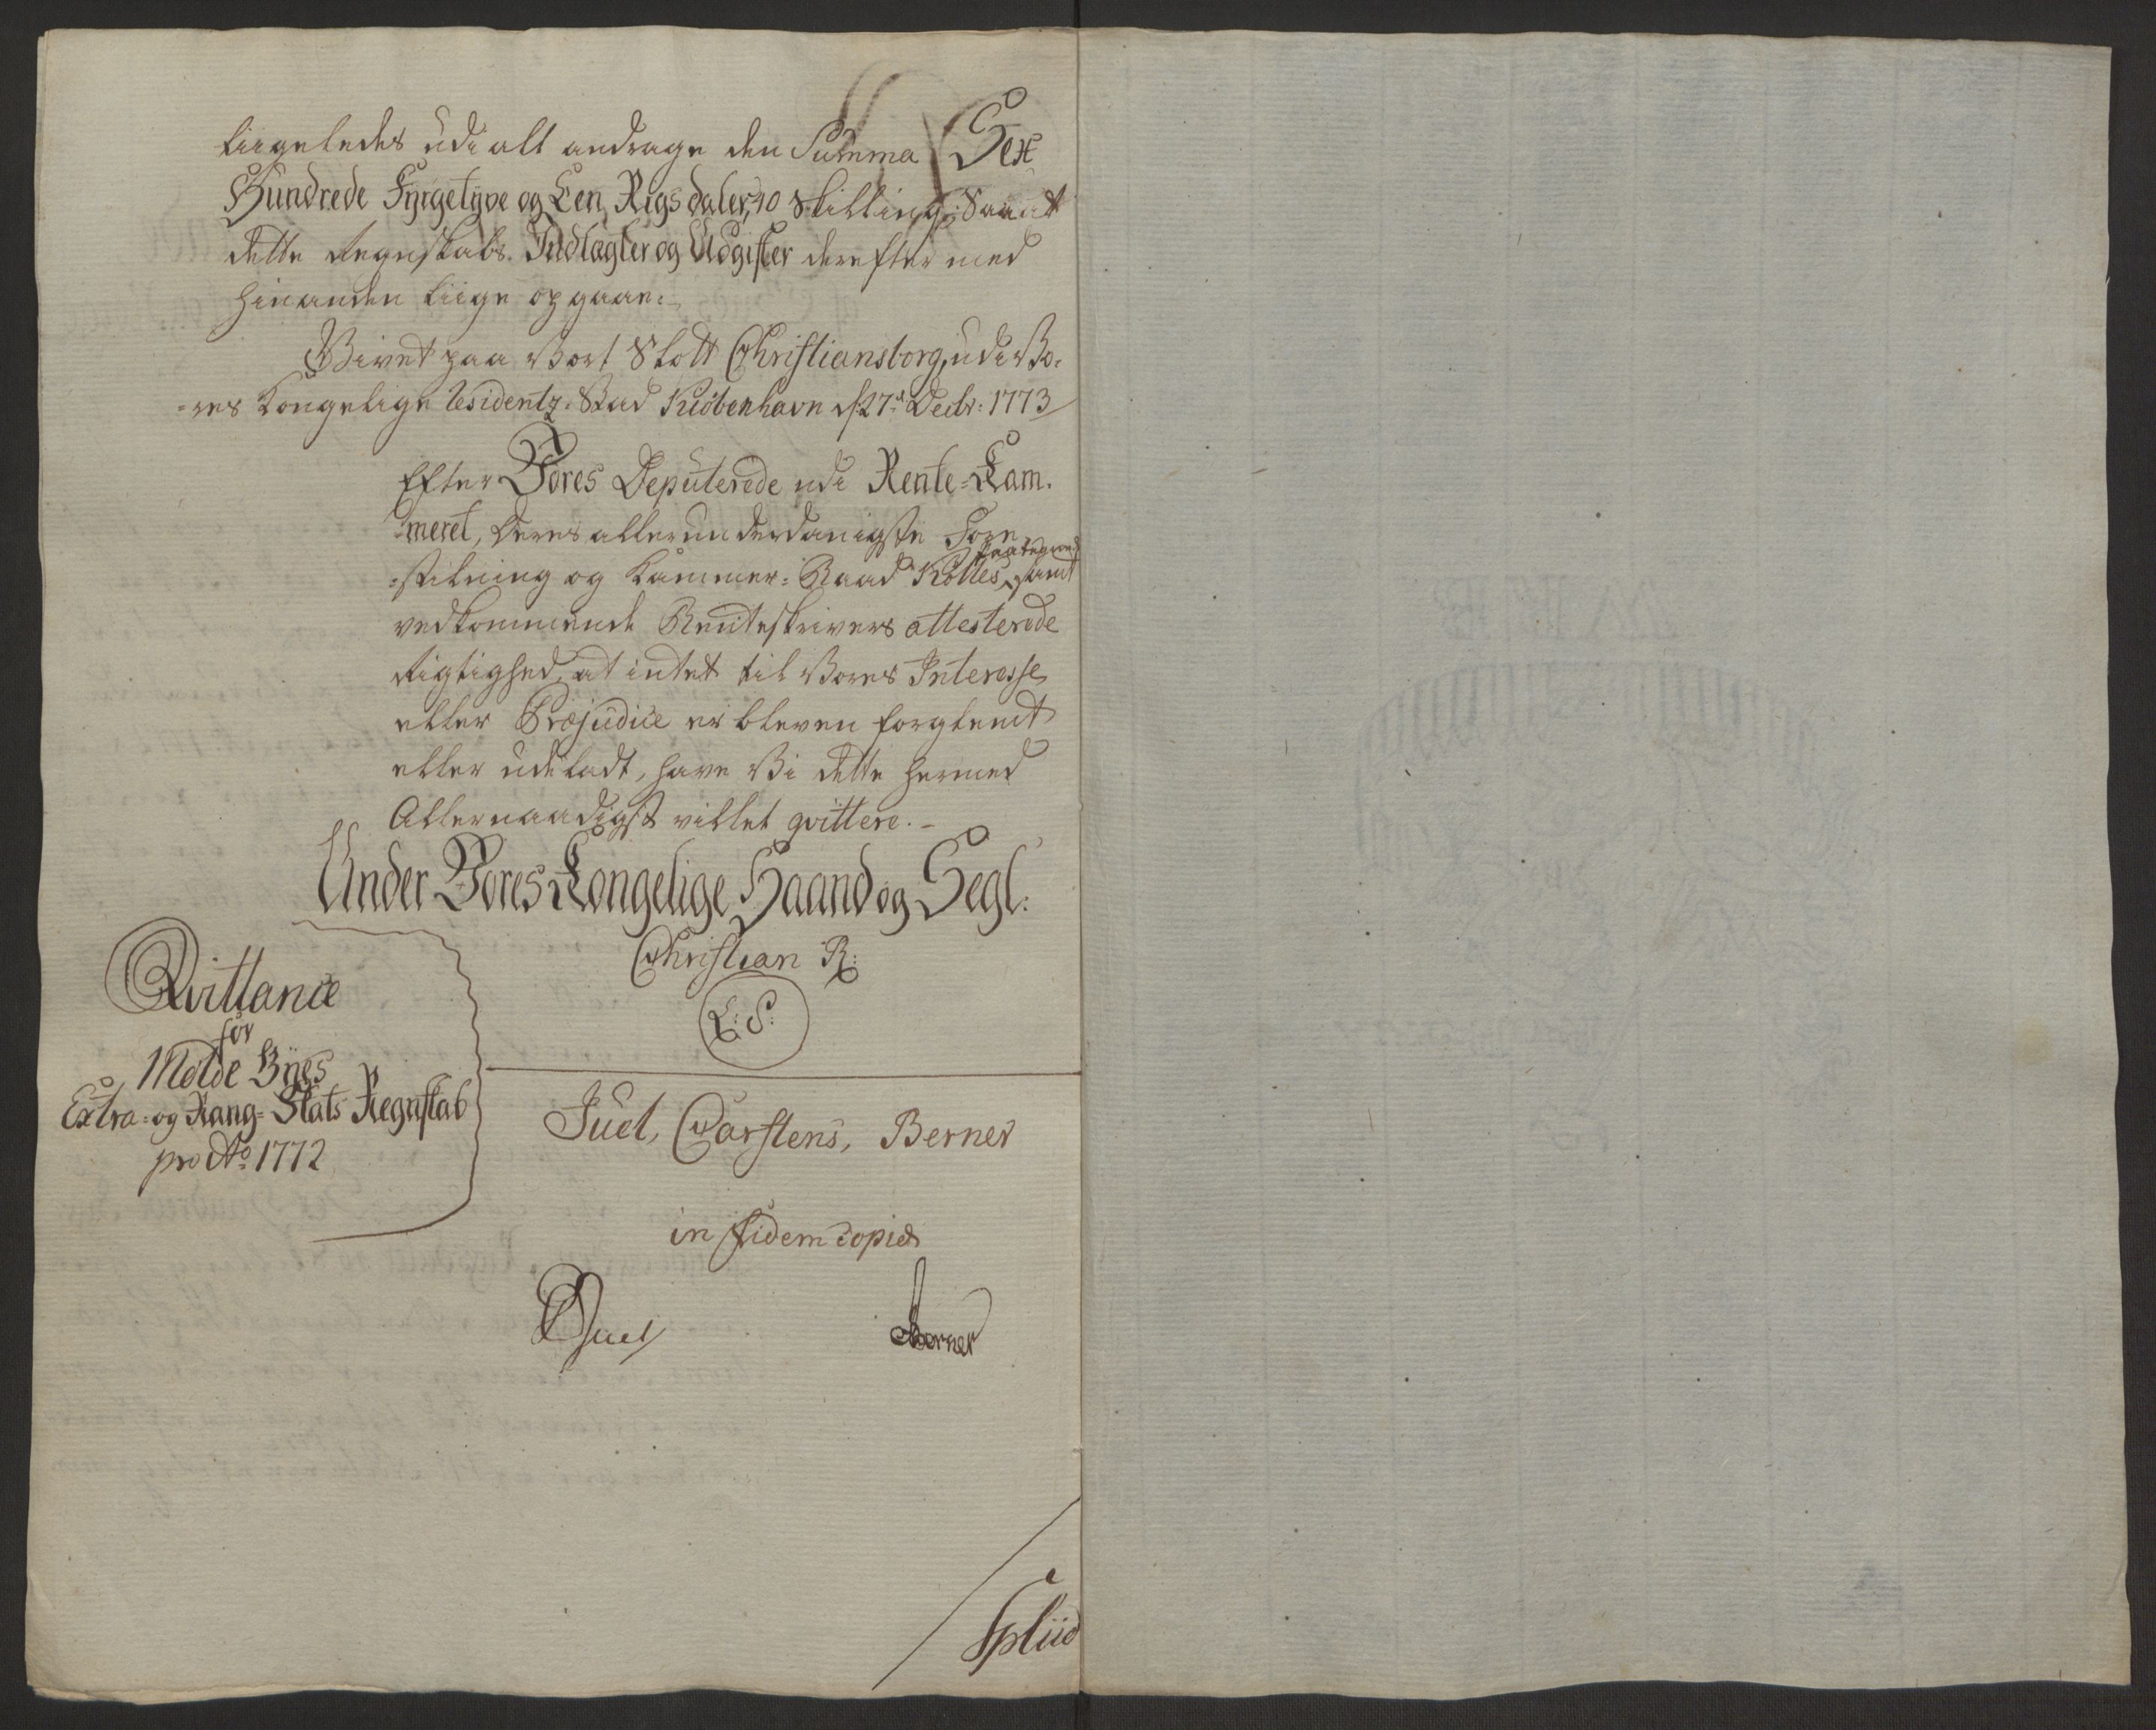 liigeledes udi alt andrage den Summa Sex
Hundrede Fyrgetyve og Een Rigsdaler, 40 Skilling; Saa at
dette Regnskabs Indtægter og Udgifter derefter med
hinanden liige opgaae.
Givet paa Vort Slott Christiansborg, udi Vo-
-res Kongelige Residentz-Stad Kiöbenhavn d: 27de Decbr: 1773
Efter Vores Deputerede udi Rente-Kam-
-meret, deres allerunderdanigste Fore-
-stilning og Kammer-Raad Kölles paategned samt
vedkommende Renteskrivers attesterede
Rigtighed, at intet til Vores Interesse
eller Præjudice er bleven forglemt
eller udeladt, have Vi dette hermed
Allernaadigst villet qvittere.-
Under Vores Kongelige Haand og Segl.
Christian R:
L: S:
Qvittance
for
Molde Byes
Extra- og Rang-Skats Regnskab
pro Ao: 1772
Juel, Carstens, Berner
in Fidem copiæ
Juel
Berner
Spliid